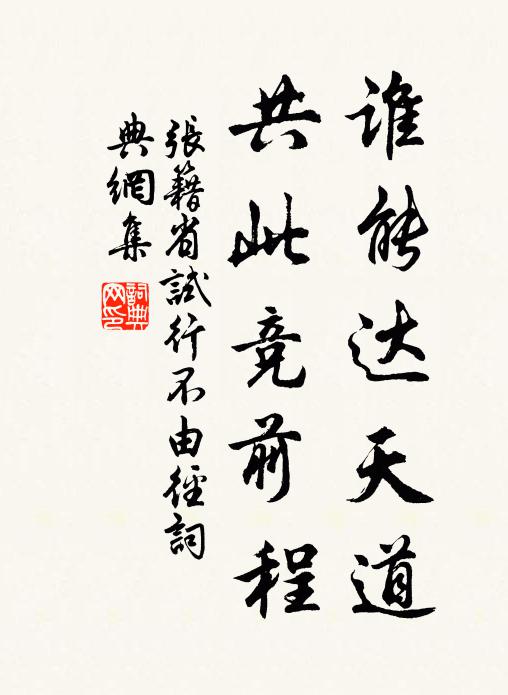 谁能达天道
共此竞前程
張籍省試行不由徑詞
典網集
詞典
网印